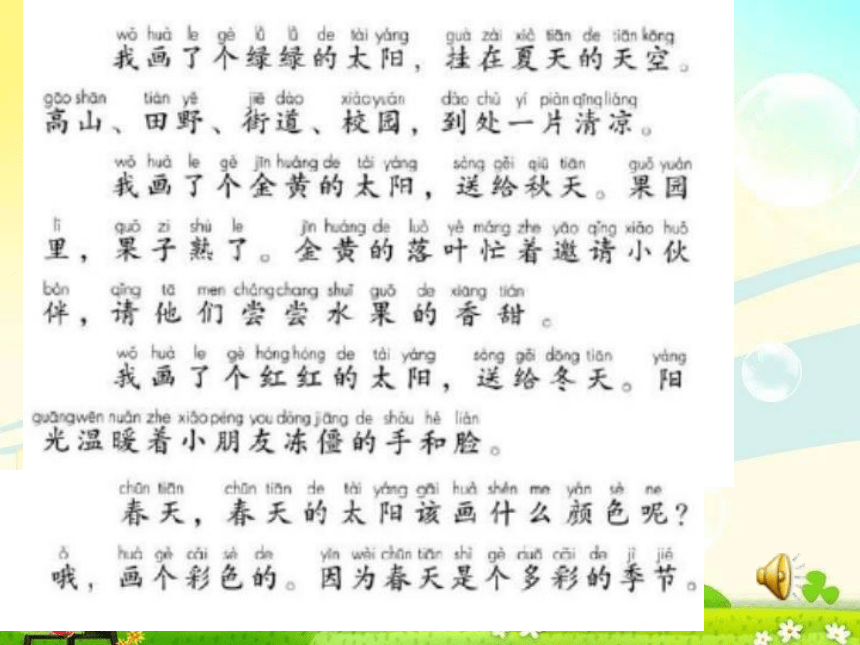 wǒ huà le gè lǜ lǜ de tài yáng guà zài xià tiān de tiān kōng
我画了个绿绿的太阳，挂在夏天的天空。
gāo shān tián yě jiē dào xiào yuán dào chù yí piàn qīng liáng
高山、田野、街道、校园，到处一片清凉。
wǒ huà le gè jīn huáng de tài yáng sòng gěi qiū tiān guǒ yuán
我画了个金黄的太阳，送给秋天。果园
lǐ guǒ zi shú le jīn huáng de luò yè máng zhe yāo qǐng xiǎo huǒ
里，果子熟了。金黄的落叶忙着邀请小伙
bàn qǐng tā men cháng chang shuǐ guǒ de xiāng tián
伴，请他们尝尝水果的香甜。
wǒ huà le gè hóng hóng de tài yáng sòng gěi dōng tiān yáng
我画了个红红的太阳，送给冬天。阳
guāng wēn nuǎn zhe xiǎo péng you dòng jiāng de shǒu hé liǎn
光温暖着小朋友冻僵的手和脸。
chūn tiān chūn tiān de tài yáng gāi huà shén me yán sè ne
春天，春天的太阳该画什么颜色呢？
ò huà gè cǎi sè de yīn wèi chūn tiān shì gè duō cǎi de jì jié
哦，画个彩色的。因为春天是个多彩的季节。